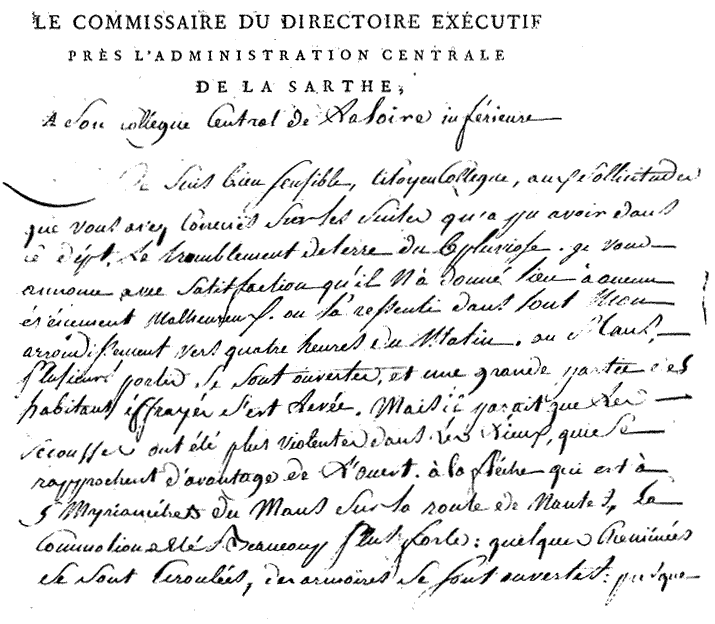 LE COMMISSAIRE DU DIRECTOIRE EXÉCUTIF
PRÈS L'ADMINISTRATION CENTRALE
DE LA SARTHE,
A Son collegue Central de La Loire inférieure
Je Suis bien sensible, Citoyen Collegue, aux Sollicitudes
que vous avez Concues Sur les Suites qu'a pu avoir dans
ce dépt. Le tremblement de terre du 6 pluviose. je vous
annonce avec Satisfaction qu'il N'a donné lieu à aucun
évènement Malheureux. on l'a ressenti dans tout Mon
arrondissement vers quatre heures du Matin. au Mans,
Plusieurs portes Se Sont ouvertes, et une grande partie des
habitans effrayés S'est Levée. Mais il parait que Les
secousses ont été plus violentes dans Les Lieux, qui Se
rapprochent d'avantage de L'ouest. à la flèche qui est à
5 Myriamétres du Mans Sur la route de Nantes, La
Commotion a été Beaucoup Plus forte : quelques Cheminées
Se Sont Ecroulées, des armoires Se Sont ouvertes : presque